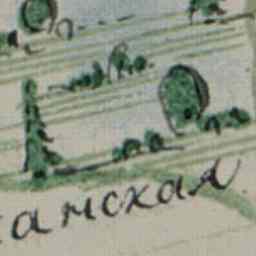 амская